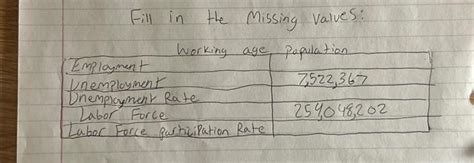 Fill in the Missing values:
Working age population
Employment
Unemployment 7,522,367
Unemployment Rate
Labor Force 259,048,202
Labor Force participation Rate